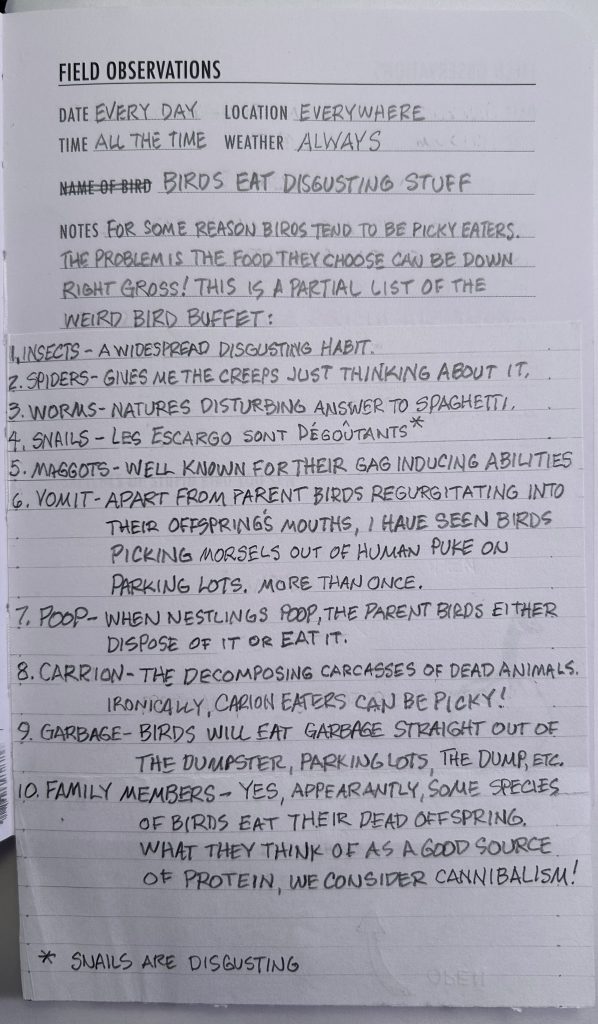 FIELD OBSERVATIONS
DATE EVERY DAY LOCATION EVERYWHERE
TIME ALL THE TIME WEATHER ALWAYS
NAME OF BIRD BIRDS EAT DISGUSTING STUFF
NOTES FOR SOME REASON BIRDS TEND TO BE PICKY EATERS.
THE PROBLEM IS THE FOOD THEY CHOOSE CAN BE DOWN
RIGHT GROSS! THIS IS A PARTIAL LIST OF THE
WEIRD BIRD BUFFET:
1. INSECTS - A WIDESPREAD DISGUSTING HABIT.
2. SPIDERS - GIVES ME THE CREEPS JUST THINKING ABOUT IT.
3. WORMS - NATURES DISTURBING ANSWER TO SPAGHETTI.
4. SNAILS - LES ESCARGO SONT DÉGOÛTANTS*
5. MAGGOTS - WELL KNOWN FOR THEIR GAG INDUCING ABILITIES
6. VOMIT - APART FROM PARENT BIRDS REGURGITATING INTO
THEIR OFFSPRING'S MOUTHS, I HAVE SEEN BIRDS
PICKING MORSELS OUT OF HUMAN PUKE ON
PARKING LOTS. MORE THAN ONCE.
7. POOP - WHEN NESTLINGS POOP, THE PARENT BIRDS EITHER
DISPOSE OF IT OR EAT IT.
8. CARRION - THE DECOMPOSING CARCASSES OF DEAD ANIMALS.
IRONICALLY, CARION EATERS CAN BE PICKY!
9. GARBAGE - BIRDS WILL EAT GARBAGE STRAIGHT OUT OF
THE DUMPSTER, PARKING LOTS, THE DUMP, ETC.
10. FAMILY MEMBERS - YES, APPEARANTLY, SOME SPECIES
OF BIRDS EAT THEIR DEAD OFFSPRING.
WHAT THEY THINK OF AS A GOOD SOURCE
OF PROTEIN, WE CONSIDER CANNIBALISM!
* SNAILS ARE DISGUSTING
OPEN